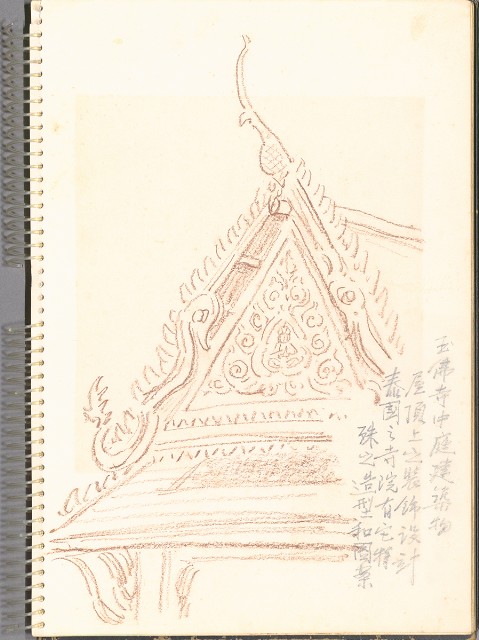 玉佛寺中庭建築物
屋頂上之裝飾設計
泰国之寺院有它特
殊之造型和图案